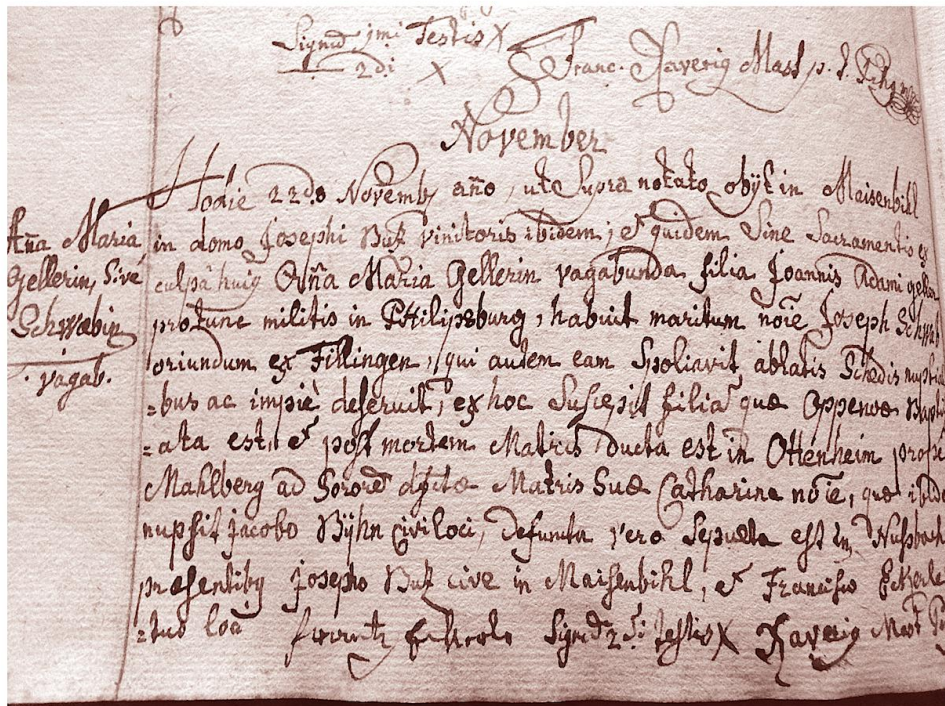 Signū 1mi Testis X
2di X Franc. Xaveriꝰ Mast p. t.
November
Hodie 22do Novemb. año, ute Supra notato obijt in Maisenbihl
Aña Maria in domo Josephi Buz vinitoris ibidem, et quidem Sine Sacramentis
Gellerin, Sivè culpâ huiꝰ Aña Maria Gellerin vagabunda filia Joannis Adami
Schwäbin protunc militis in Philipsburg, habuit maritum noīe Joseph
vagab. oriundum ex Fillingen, qui autem eam Spoliavit, ablatis Schedis
=bus ac impiè deseruit, ex hoc Suscepit filiā quæ Oppenoæ
=ata est, et post mortem Matris ducta est in Ottenheim prope
Mahlberg ad Sororē dictæ Matris Suæ Catharina noīe, quæ
nupsit Jacobo Bÿhn Civi loci, Defuncta vero Sepulta est in Nussbach
præsentibꝰ Josepho Buz cive in Maisenbihl, et Francisco
Signū 2di testis X Xaveriꝰ Mast